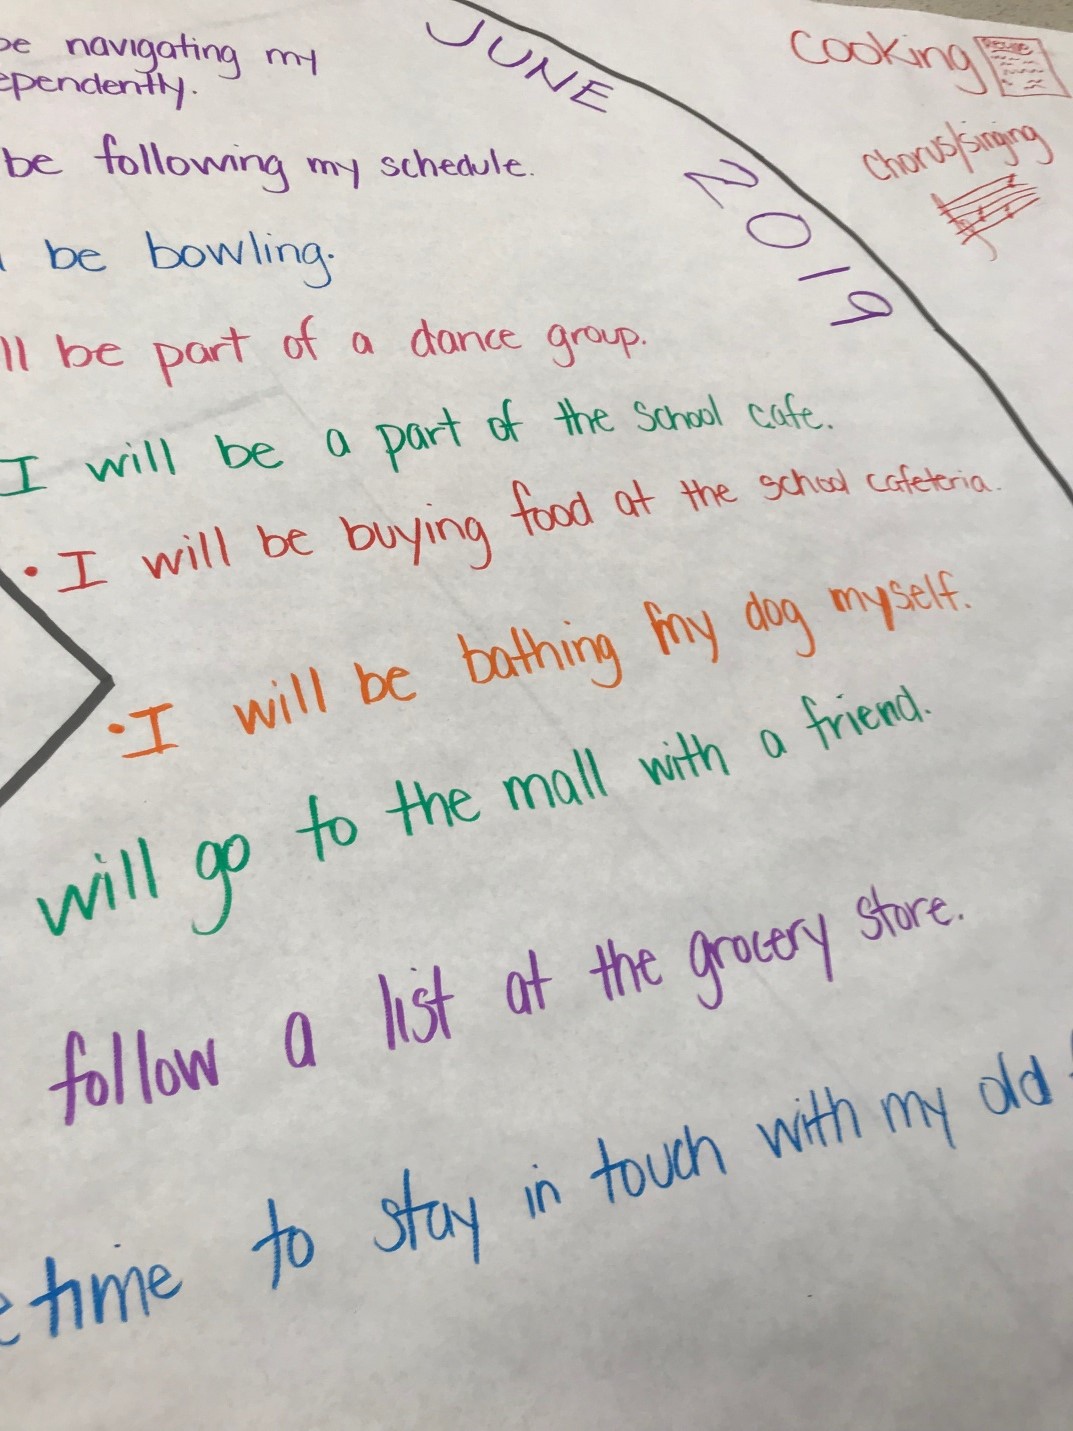 be navigating my
ependently.
be following my schedule.
be bowling.
ll be part of a dance group.
I will be a part of the school cafe.
• I will be buying food at the school cafeteria.
• I will be bathing my dog myself.
will go to the mall with a friend.
follow a list at the grocery store.
e time to stay in touch with my old
JUNE
2019
Cooking
Recipe
Chorus/singing